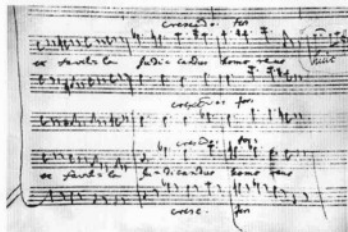 crescendo: for
ex favilla Judicandus homo reus
huic
crescdo: for
crescdo: for
ex favilla Judicandus homo reus
cresc: for